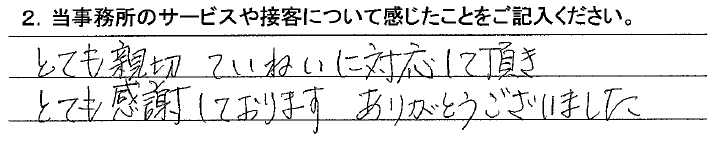 2. 当事務所のサービスや接客について感じたことをご記入ください。
とても親切 ていねいに対応して頂き
とても感謝しております ありがとうございました